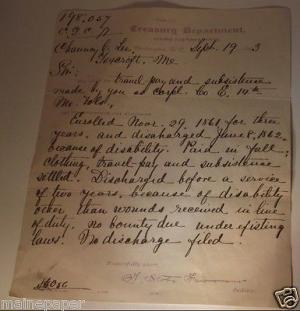 198,057
Treasury Department,
Sept. 19 3
Chauncy C. Lee,
Foxcroft, Me
Sir:
travel pay and subsistence
made by you as Corpl. Co E. 14th
Me. Vols.
Enrolled Novr. 29, 1861 for three
years, and discharged June 8, 1862,
because of disability. Paid in full,
clothing, travel pay and subsistence
settled. Discharged before a service
of two years, because of disability
other than wounds received in line
of duty, no bounty due under existing
laws. No discharge filed.
Respectfully yours,
Auditor.
mainepaper